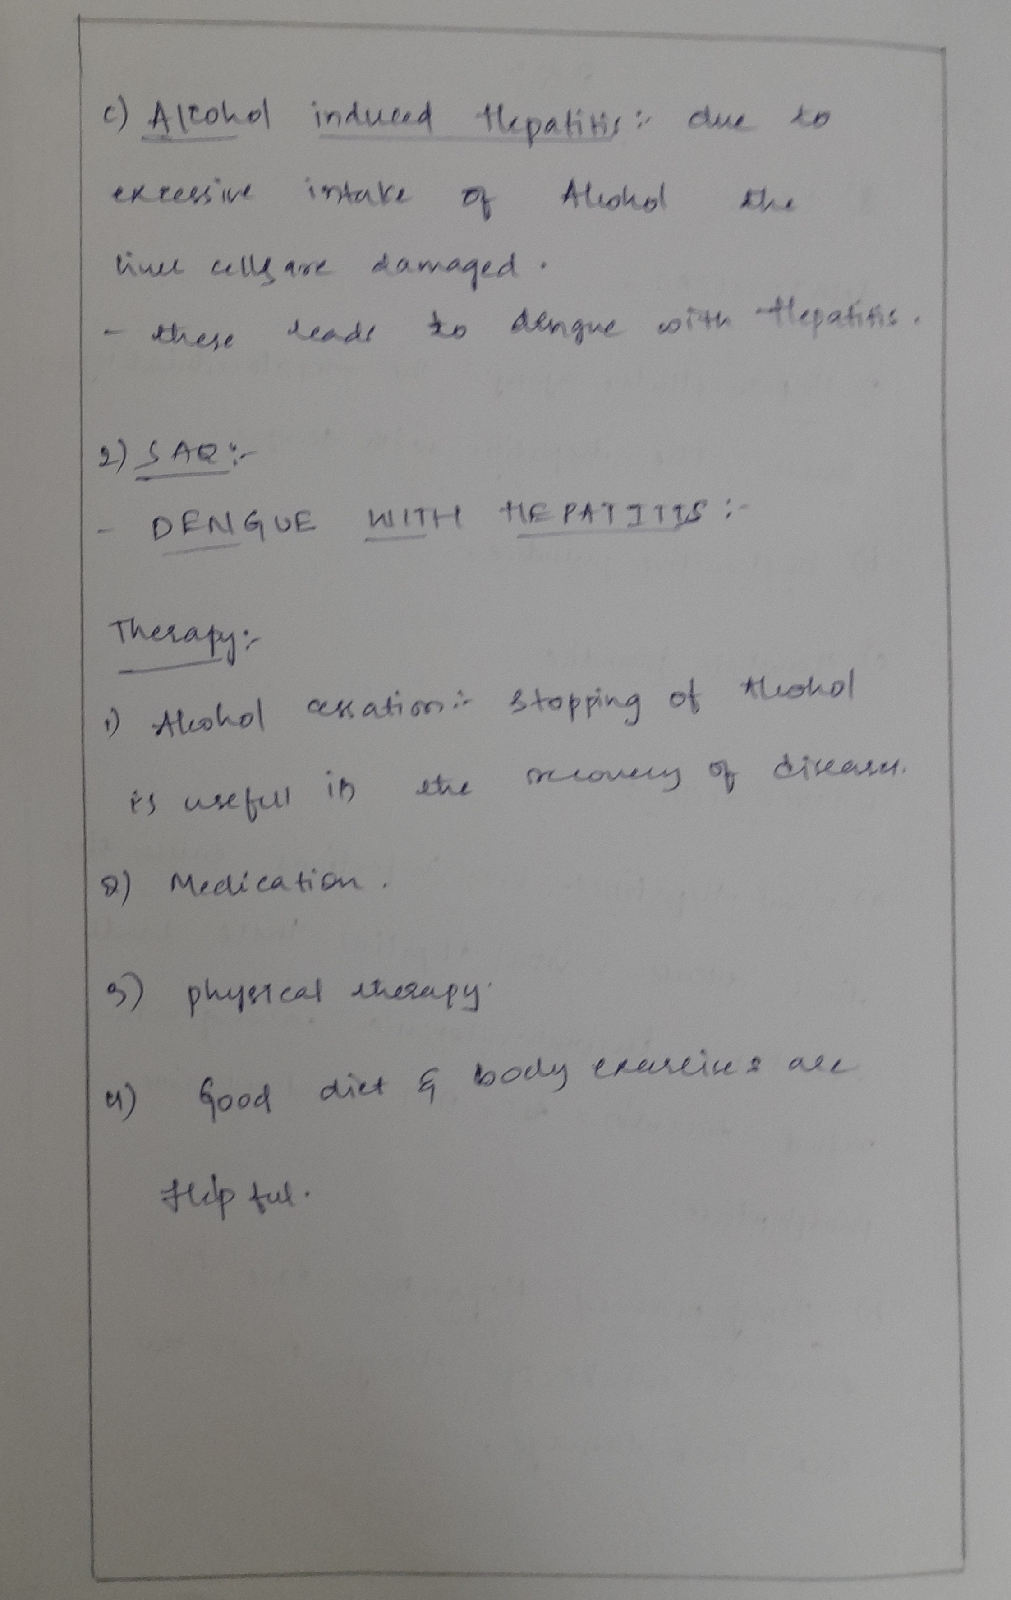 c) Alcohol induced Hepatitis :- due to
excessive intake of Alcohol the
liver cells are damaged.
- these leads to dengue with Hepatitis.
2) SAQ :-
- DENGUE WITH HEPATITIS :-
Therapy :-
1) Alcohol cessation :- stopping of Alcohol
is usefull in the recovery of disease.
2) Medication.
3) physical therapy.
4) Good diet & body exercises are
Helpful.